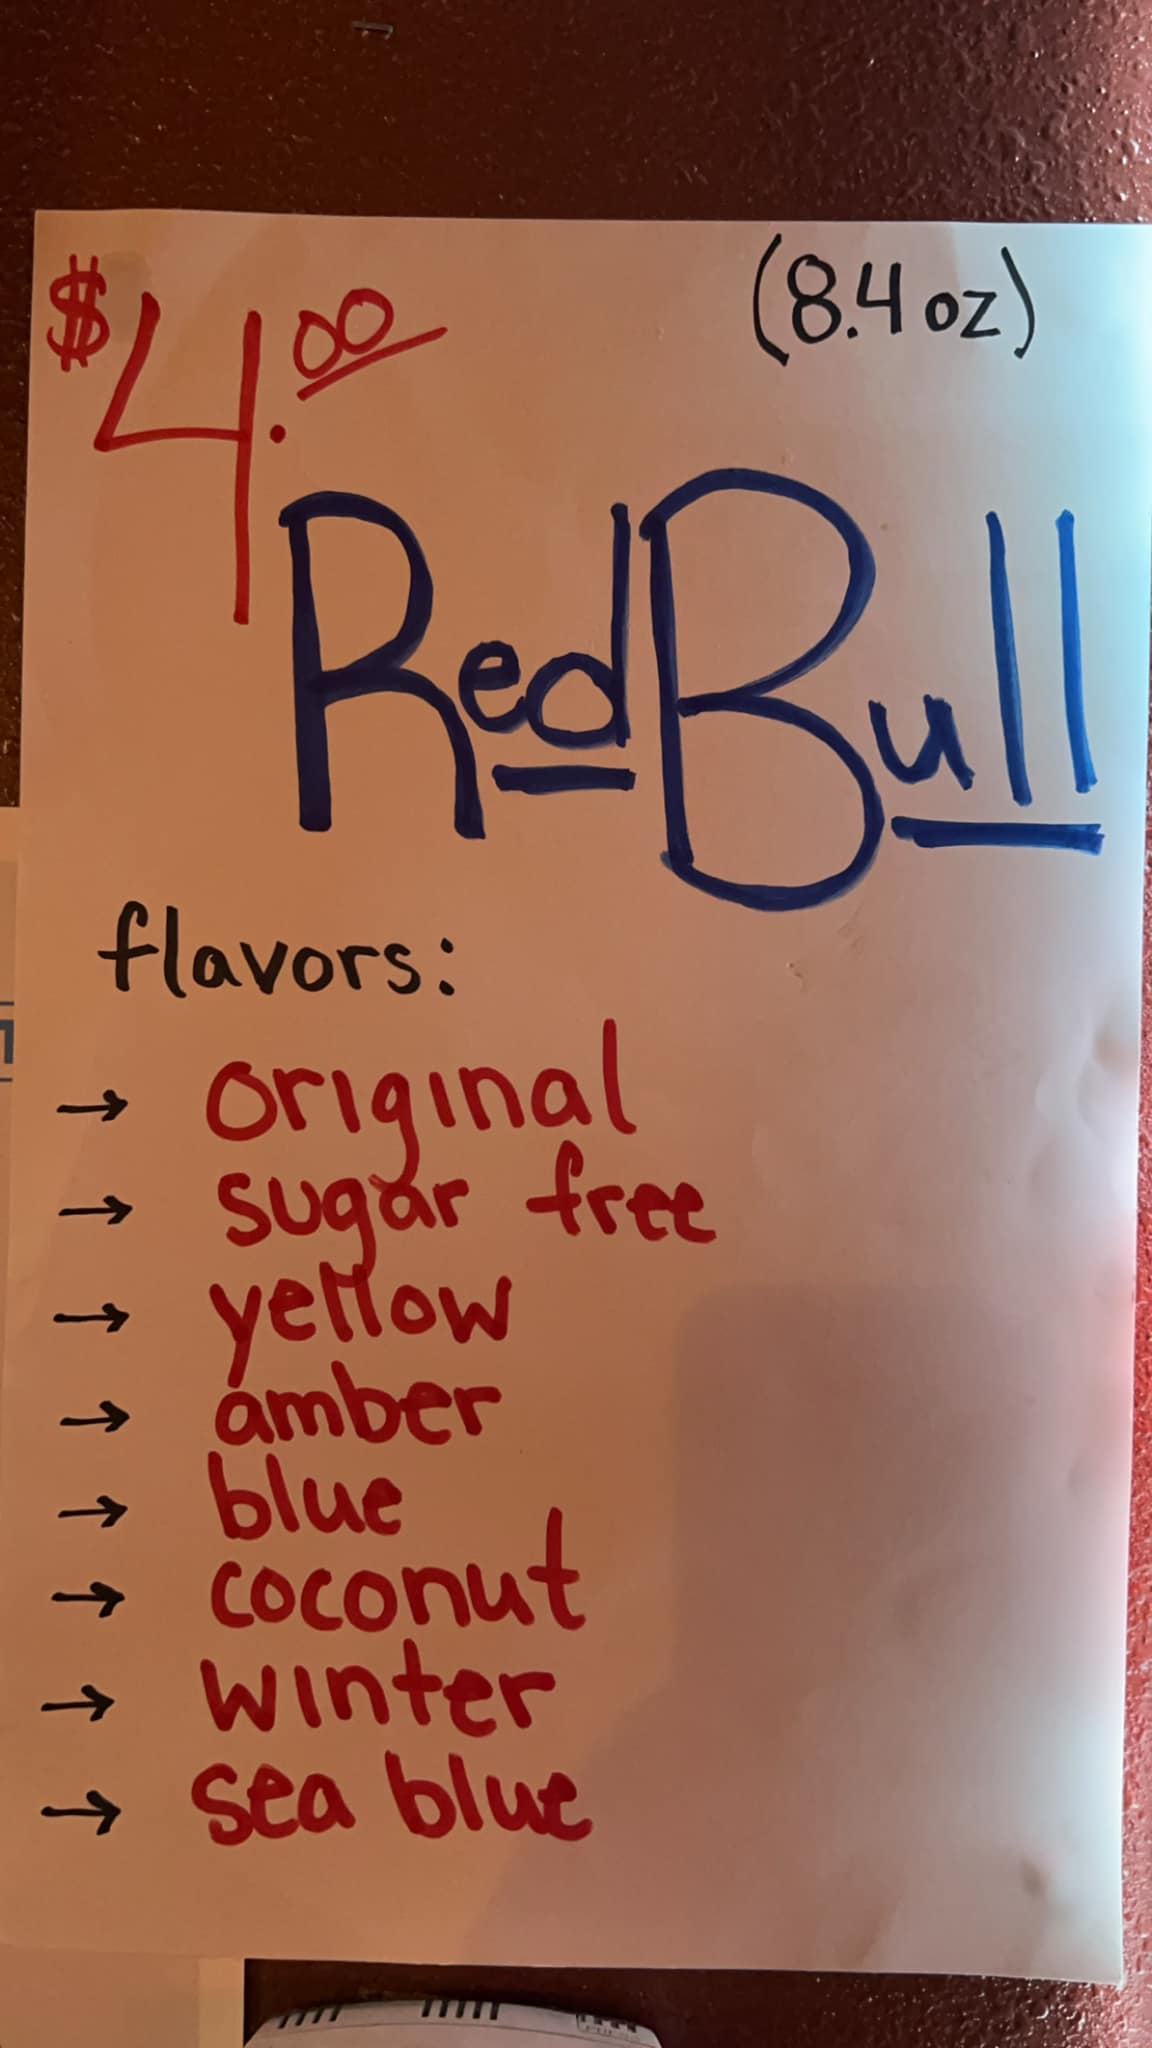 $4.00
(8.4 oz)
RedBull
flavors:
→ original
→ sugar free
→ yellow
→ amber
→ blue
→ coconut
→ winter
→ sea blue